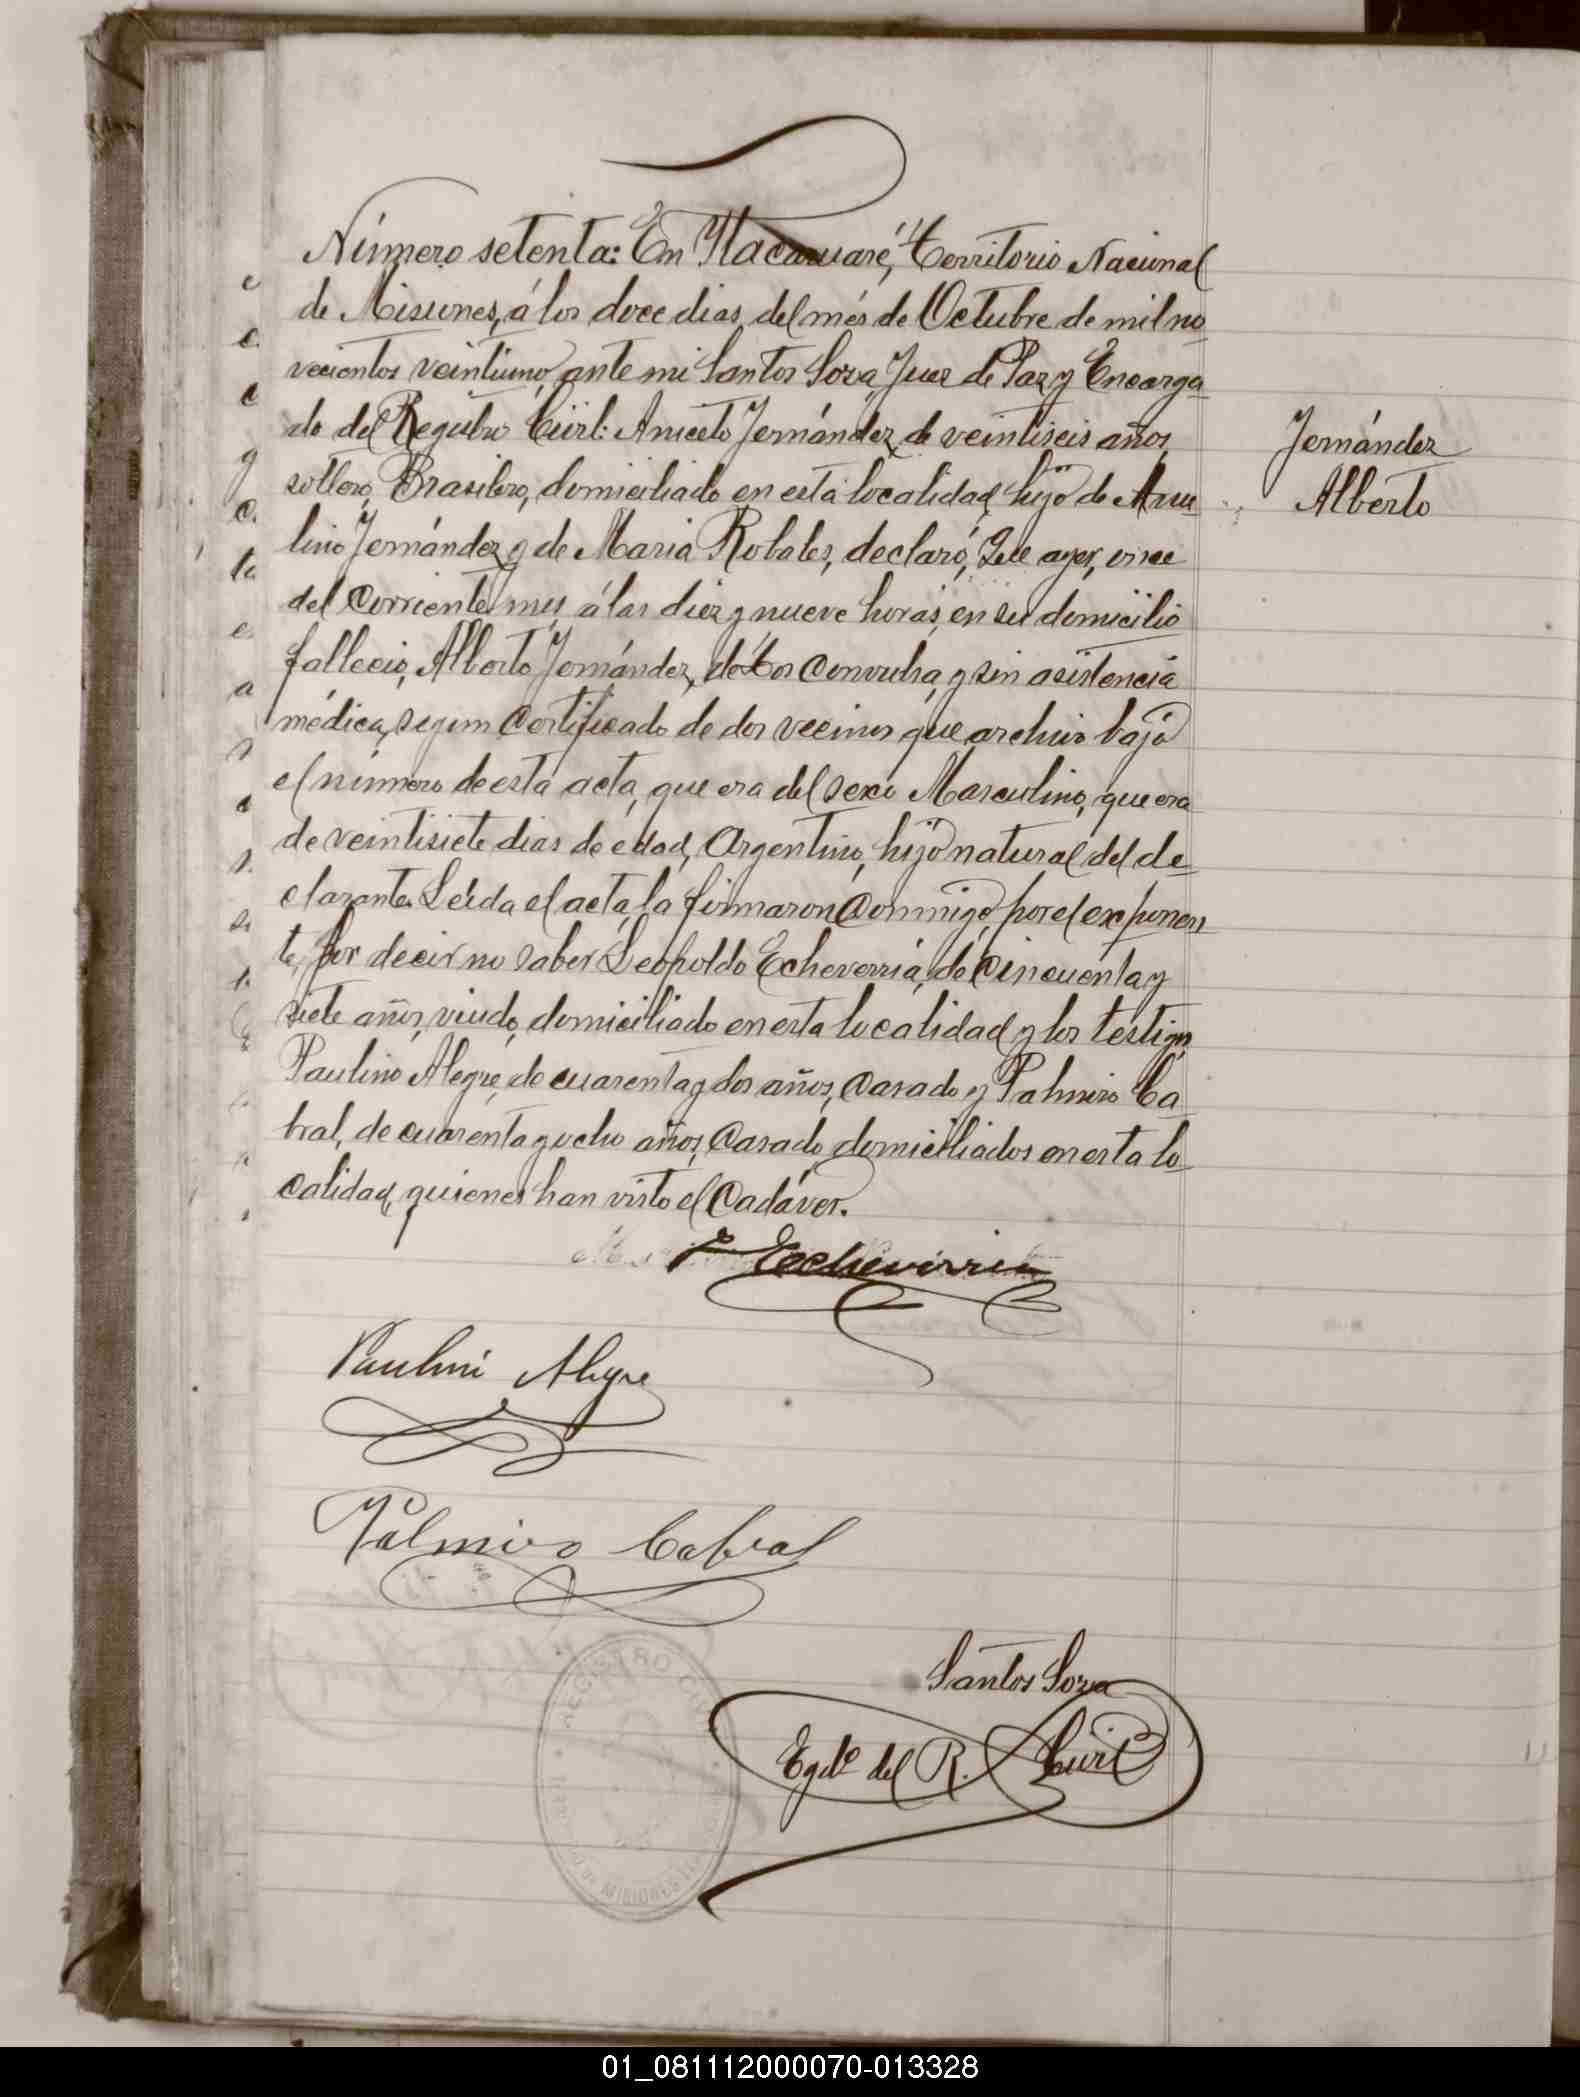 Número setenta: En Itacaruaré, Territorio Nacional
de Misiones, á los doce dias del més de Octubre de mil no
vecientos veintiuno, ante mi Santos Soza, Juez de Paz y Encarga
do del Registro Civil: Aniceto Fernández, de veintiseis años,
soltero, Brasilero, domiciliado en esta localidad, hijo de
lino Fernández y de Maria Robales, declaró, Que ayer, once
del corriente mes, á las diez y nueve horas, en su domicilio
fallecio, Alberto Fernández, de tos Convulsa, y sin asistencia
médica, segun Certificado de dos vecinos que archivo bajo
el número de esta acta, que era del sexo Masculino, que era
de veintisiete dias de edad, Argentino, hijo natural del de
clarante. Leida el acta, la firmaron Conmigo, por el exponen
te, por decir no saber Leopoldo Echeverria, de Cincuenta y
siete años, viudo, domiciliado en esta localidad y los testigos
Paulino Alegre, de cuarenta y dos años, Casado y Palmiro Ca
bral, de cuarenta y ocho años, Casado domiciliados en esta lo
calidad, quienes han visto el Cadáver.
Fernández
Alberto
Echevirria
Paulino Alegre
Palmiro Cabral
Santos Soza
Egdo del R. Civil
REGISTRO CIVIL
MISIONES
01_081112000070-013328